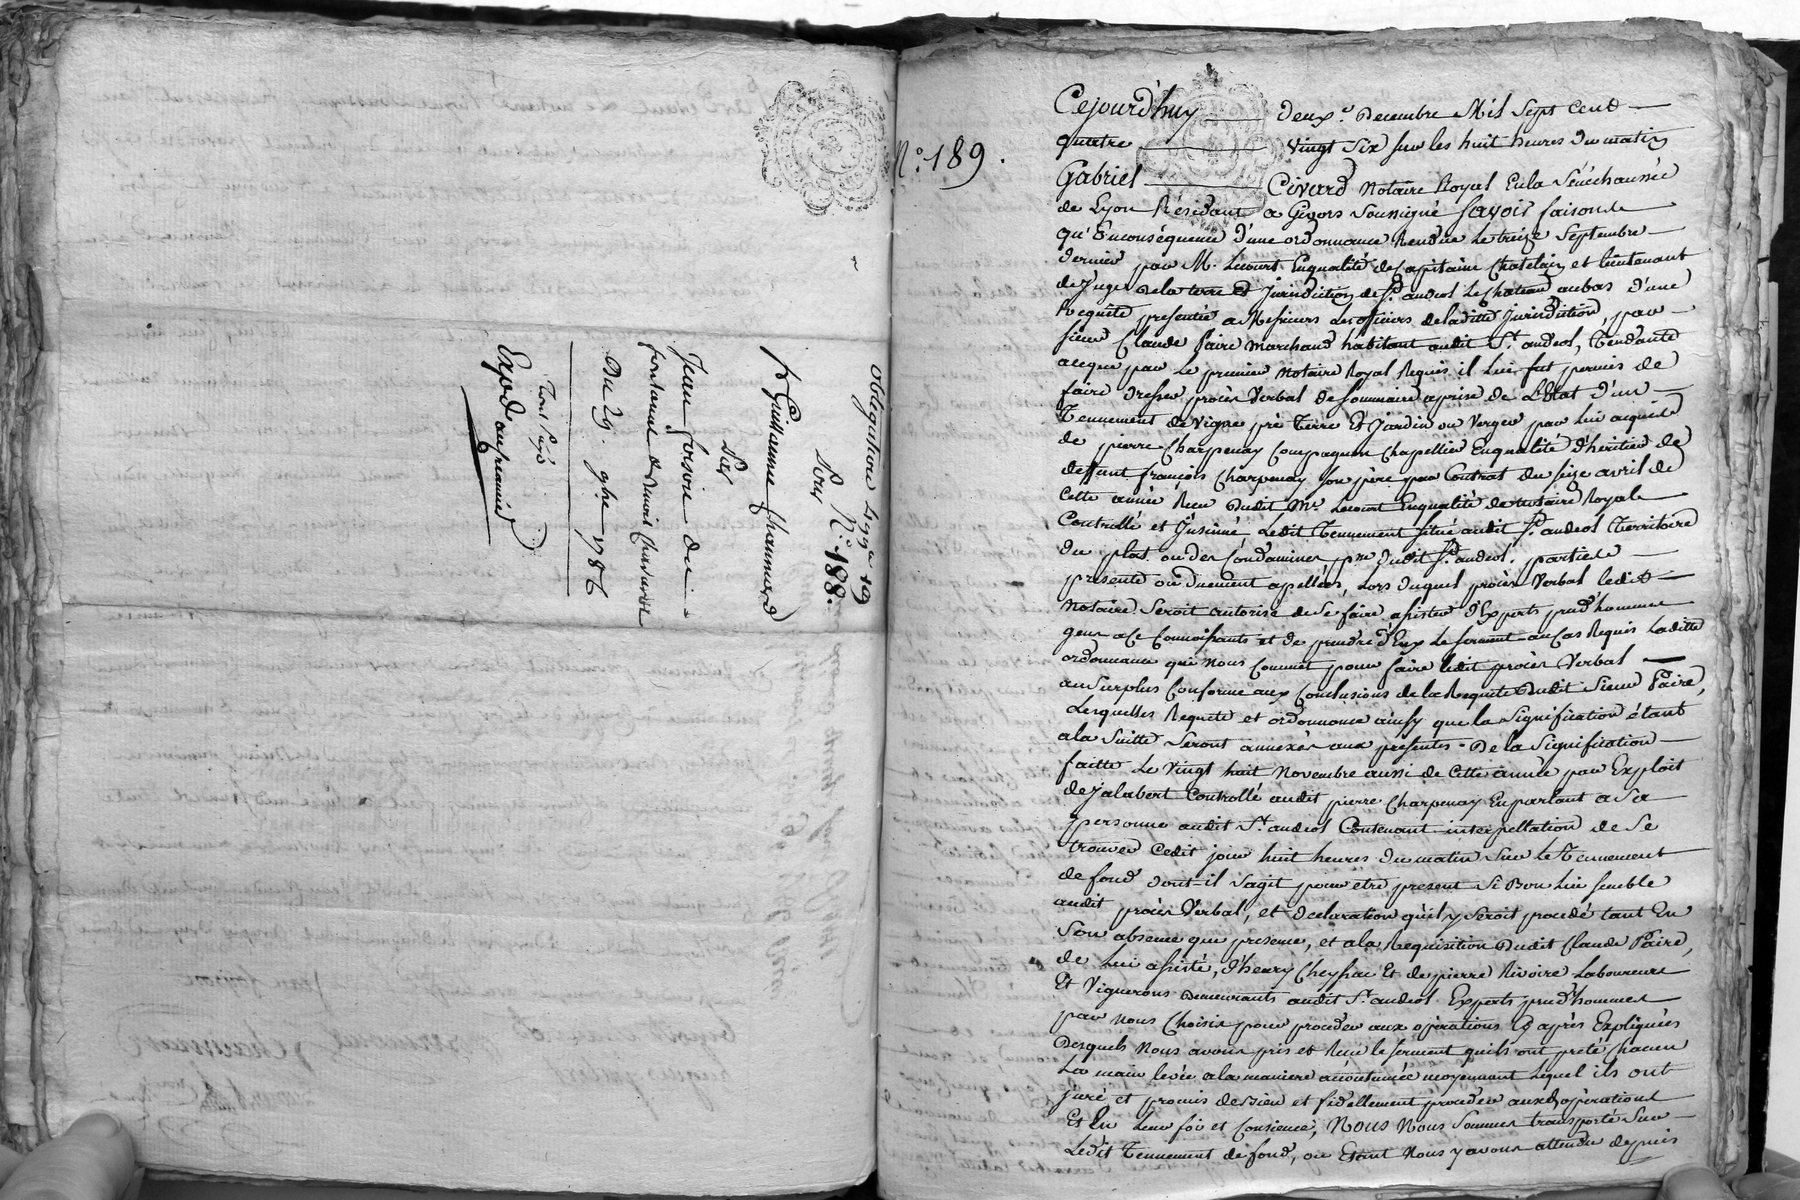 obligation 477# 19
N.° 188.
Pour
Sr Guillaume Chammard
Sur
Jean foison du
Du 29. 9bre 1786
Exp.d au premier
N.° 189.
Cejourd'huy deux.e Decembre Mil Sept Cent
quatre vingt Six sur les huit heures du matin
Gabriel Civard Notaire Royal En la Sénéchaussée
de Lyon Résidant a Givors Soussigné Savoir faisons
qu'Enconséquence d'une ordonnance Rendue Le treize Septembre
dernier par M. Lecourt Enqualité de Capitaine Chatelain et lieutenant
de Juge De la terre Et Jurisdiction de St. andeol Le Chateau aubas d'une
Requête presentée a Messieurs les officiers de laditte Jurisdiction, par
sieur Claude Paire marchand habitant audit St. andeol, Tendante
aceque par Le premier Notaire Royal Requis il Lui fut permis de
faire dresser procès Verbal de Sommaire aprise de L'Etat d'un
Tennement de Vigne pré Terre Et Jardin ou Verger par Lui acquis
de pierre Charpenay Compagnon Chapellier Enqualité d'héritier de
deffunt françois Charpenay Son père par Contrat du Seize avril de
Cette année Reçu Dudit Mr. Lecourt Enqualité de notaire Royal
Controllé et Insinué Ledit Tennement situé audit St. andeol Territoire
du plat ou des Condamines psse dudit St. andeol, parties
presente ou Duement apellées, Lors duquel procès Verbal ledit
Notaire Seroit autorisé de Se faire assister d'Experts prud'hommes
gens a Ce Connoissants et de prendre d'Eux Le Serment au Cas Requis Laditte
ordonnance qui nous Commet pour faire ledit procès Verbal
au Surplus Conforme aux Conclusions de la Requete Dudit Sieur Paire,
Lesquelles Requete et ordonnance ainsy que la Signification étant
a la Suitte Seront annexés aux presentes. De la Signification
faitte Le Vingt huit Novembre aussi de Cette année par Exploit
de Jalabert Controllé audit pierre Charpenay En parlant a Sa
personne audit St. andeol Contenant interpellation de Se
trouver Cedit jour huit heures du matin Sur le Tennement
de fond dont-il Sagit pour etre present Si Bon Lui Semble
audit procès Verbal, et declaration qu'il y Seroit procedé tant En
Son absence que presence, et a la Requisition Dudit Claude Paire,
de Lui assisté, d'henry Cheyssac Et de pierre Rivoire Laboureurs
Et Vignerons Demeurants audit St. andeol Experts prud'hommes
par nous Choisis pour proceder aux opérations Cy après Expliquées
Desquels Nous avons pris et Reçu le Serment quils ont preté Chacun
La main levée a la maniere accoutumée moyennant Lequel ils ont
juré et promis de bien et fidellement proceder auxd. opérations
Et En Leur foi et Consience, Nous Nous Sommes transporté Sur
Ledit Tennement de fond, ou Etant Nous y avons attendu depuis